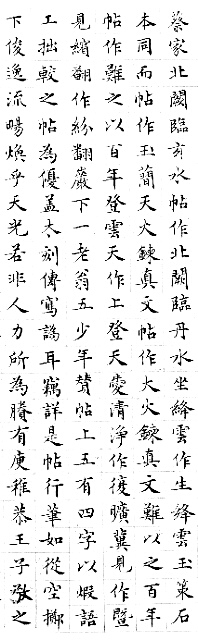 蔡家北闕臨玄水帖作北闕臨丹水坐絳雲作生絳雲玉策石
本同而帖作玉簡天火鍊真文帖作大火鍊真文難以之百年
帖作難之以百年登雲天作上登天憂清淨作復曠冀見作暨
見綃翻作紛翻巖下一老翁五少年贊帖上五有四字以蝦語
工拙較之帖為優蓋木刻傳寫譌耳竊詳是帖行筆如從空擲
下俊逸流暢煥乎天光若非人力所為賸有庾稚恭王子敬之